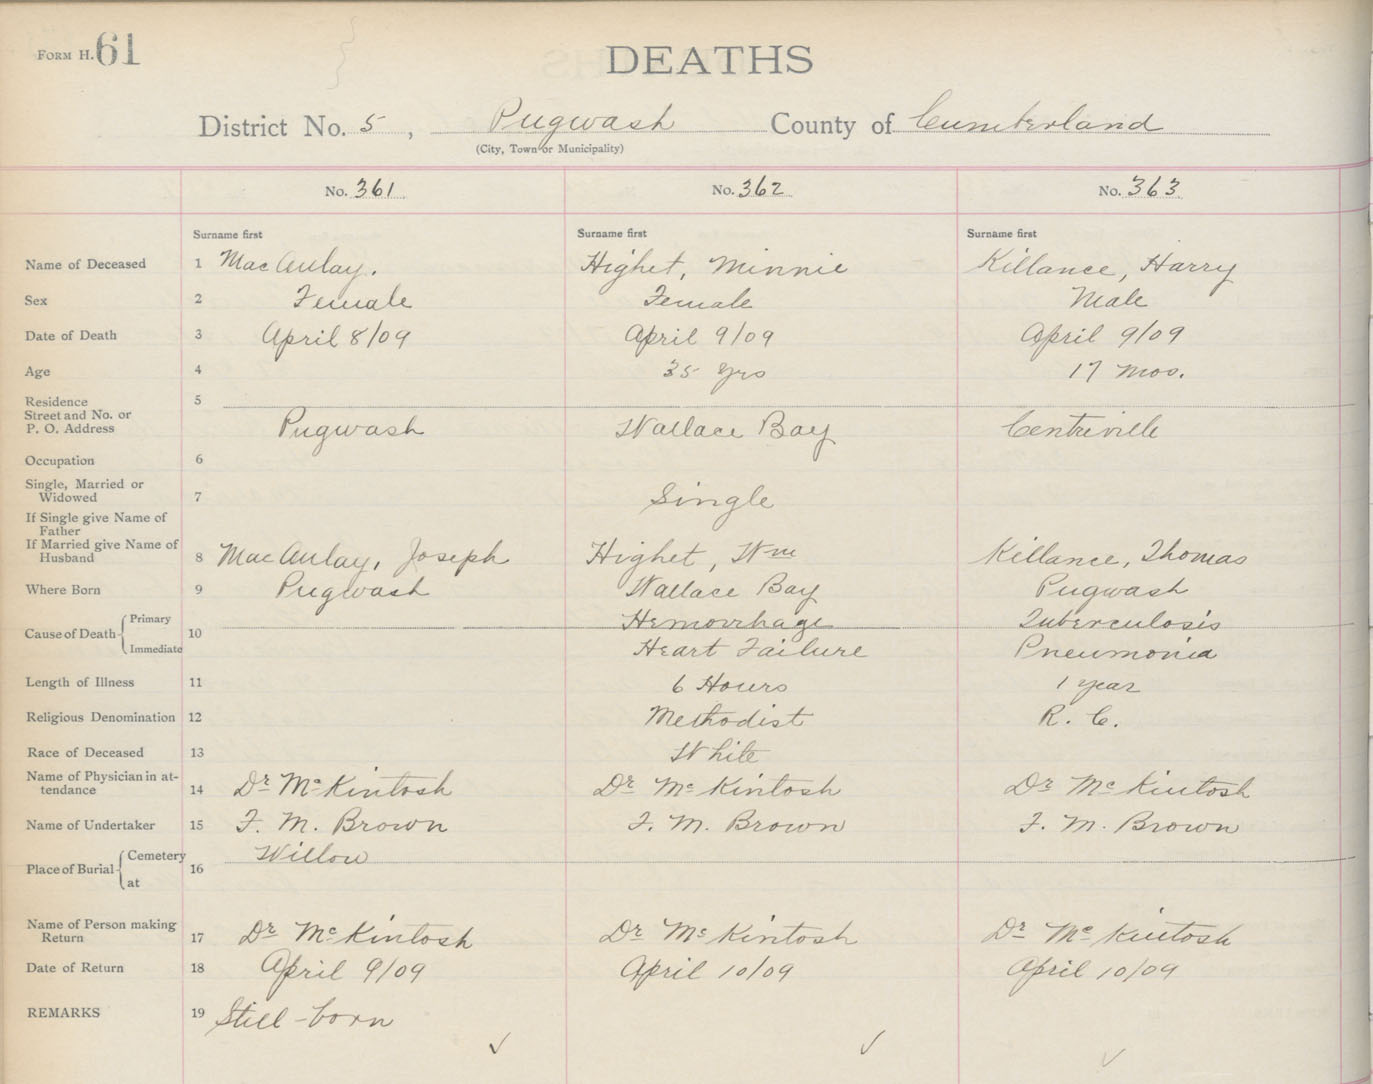 FORM H. 61
DEATHS
District No. 5, Pugwash County of Cumberland
(City, Town or Municipality)
No. 361 No. 362 No. 363
Surname first Surname first Surname first
Name of Deceased 1 MacAulay. Highet, Minnie Killance, Harry
Sex 2 Female Female Male
Date of Death 3 April 8/09 April 9/09 April 9/09
Age 4 35 yrs 17 mos.
Residence 5
Street and No. or
P. O. Address Pugwash Wallace Bay Centriville
Occupation 6
Single, Married or
Widowed 7 Single
If Single give Name of
Father
If Married give Name of
Husband 8 MacAulay, Joseph Highet, Wm Killance, Thomas
Where Born 9 Pugwash Wallace Bay Pugwash
Primary Hemorrhage Tuberculosis
Cause of Death 10
Immediate Heart Failure Pneumonia
Length of Illness 11 6 Hours 1 year
Religious Denomination 12 Methodist R. C.
Race of Deceased 13 White
Name of Physician in at-
tendance 14 Dr McKintosh Dr McKintosh Dr McKintosh
Name of Undertaker 15 F. M. Brown F. M. Brown F. M. Brown
Cemetery Willow
Place of Burial 16
at
Name of Person making
Return 17 Dr McKintosh Dr McKintosh Dr McKintosh
Date of Return 18 April 9/09 April 10/09 April 10/09
REMARKS 19 Still-born